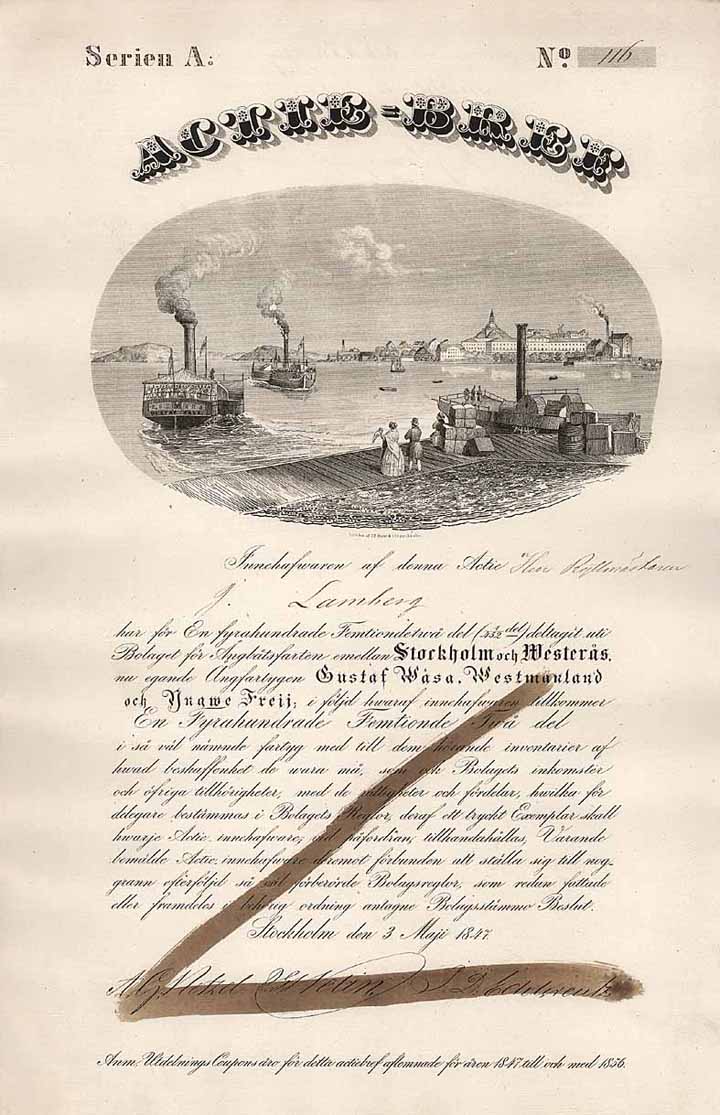 Serien A:
Nº 116
ACTIE=BREF
Innehafwaren af denna Actie Herr Ryttmästaren
J. Lamberg
har för En fyrahundrade Femtiondetwå del (1/452 del) deltagit uti
Bolaget för Ångbåtsfarten emellan Stockholm och Westerås,
nu egande Ångfartygen Gustaf Wåsa, Westmanland
och Yngwe Freij; i följd hwaraf innehafwaren tillkommer
En Fyrahundrade Femtionde Twå del
i så väl nämnde fartyg med till dem hörande inventarier af
hwad beskaffenhet de wara må, som ock Bolagets inkomster
och öfriga tillhörigheter, med de rättigheter och fördelar, hwilka för
delegare bestämmas i Bolagets Reglor, deraf ett tryckt Exemplar skall
hwarje Actie innehafware, vid påfordran, tillhandahållas, Varande
bemälde Actie innehafware deremot förbunden att ställa sig till nog-
grann efterföljd så väl förberörde Bolagsreglor, som redan fattade
eller framdeles i behörig ordning antagne Bolagsstämmo Beslut.
Stockholm den 3 Maji 1847.
Anm: Utdelnings Coupons äro för detta actiebref aflemnade för åren 1847 till och med 1856.